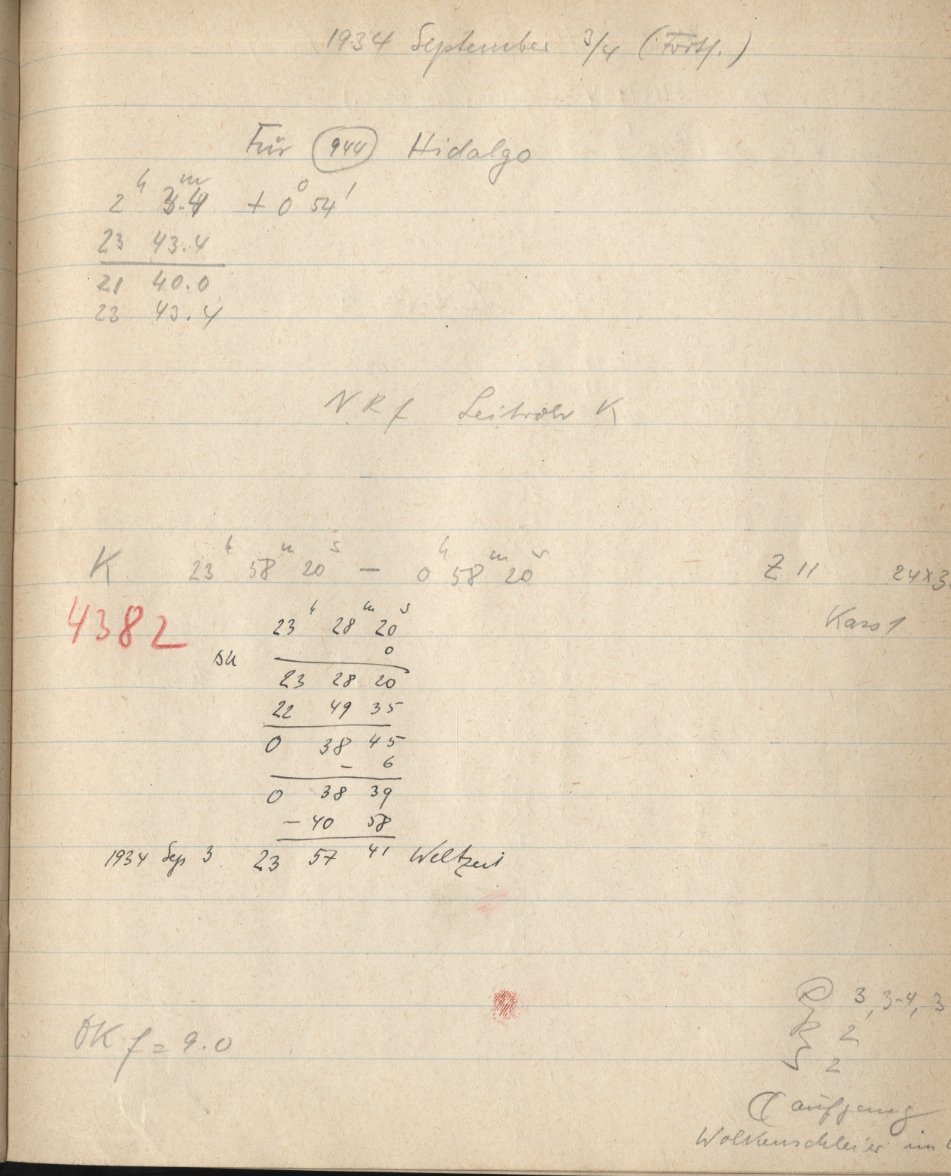 1934 September 3/4 (Forts.)
Für (944) Hidalgo
2ʰ 3.4ᵐ + 0° 54'
23 43.4
21 40.0
23 43.4
NRf Leitrohr K
K 23ʰ 58ᵐ 20ˢ — 0ʰ 58ᵐ 20ˢ Z 11 24x3
4382 23ʰ 28ᵐ 20ˢ Kass 1
Δu 0
23 28 20
22 49 35
0 38 45
– 6
0 38 39
– 40 58
1934 Sep 3. 23 57 41 Weltzeit
3, 3-4, -3
DK f = 9.0 R 2
S 2
☾ aufgang
Wolkenschleier im